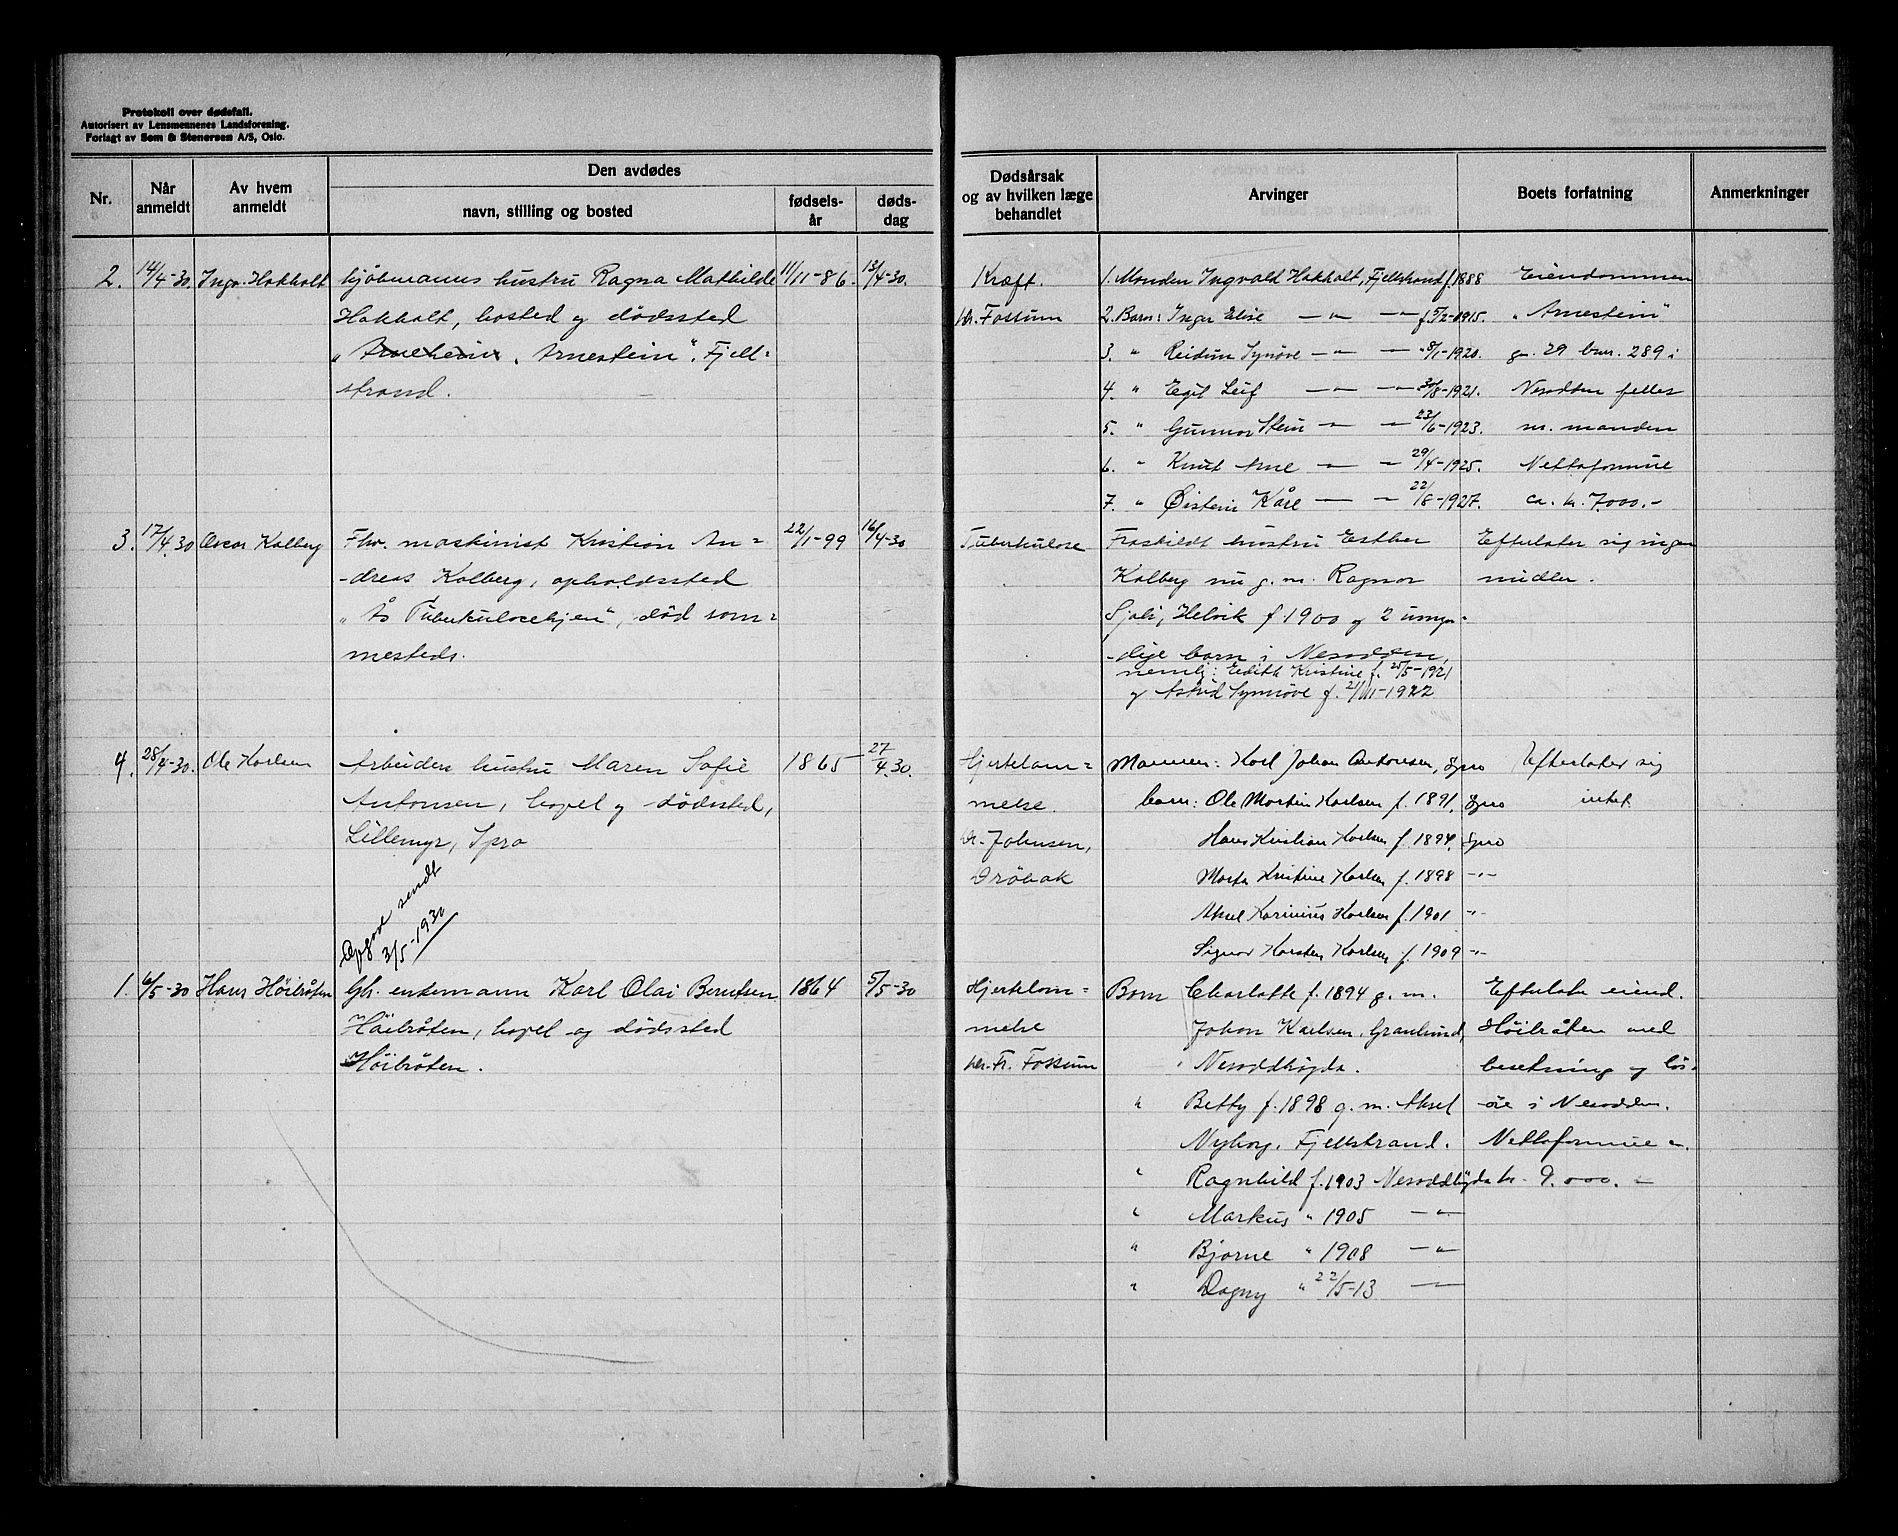 Protokoll over dødsfall.
Autorisert av Lensmennenes Landsforening.
Forlagt av Sem & Stenersen A/S, Oslo.
Nr.
Når anmeldt
Av hvem anmeldt
Den avdødes
navn, stilling og bosted
fødsels-år
døds-dag
Dødsårsak og av hvilken læge behandlet
Arvinger
Boets forfatning
Anmerkninger
2. 14/4-30. Ingv. Hakholt kjøbmanns hustru Ragna Mathilde 11/11-86. 13/4-30.
Hakholt, bosted og dødssted
"Arneheim, Arnestein". Fjell=
strand.
Kræft.
Dr. Fossum
1. Manden Ingvald Hakholt, Fjellstrand f. 1888
2. Barn: Inger Elise — " — — f 5/2-1915.
3. " Reidun Synøve — " — — " 8/1-1920.
4. " Egil Leif — " — — 30/8-1921.
5. " Gunnar Stein — " — 23/6-1923.
6. " Knut Arne — " — 29/4-1925.
7. " Øistein Kåre — — 22/8-1927.
Eiendommen
"Arnestein"
g. 29 bnr. 289 i
Nesodden felles
m. manden
Nettoformue
ca. kr. 7000.-
3. 17/4.30 Oscar Kolberg Fhv. maskinist Kristian An= 22/1-99 16/4-30
-dreas Kolberg, opholdssted
"Ås Tuberkulosehjem", død som=
mesteds.
Tuberkulose
Fraskildt hustru Esther
Kolberg nu g. m. Ragnar
Helvik f 1900 og 2 umyn=
-dige barn i Nesodden,
nemlig: Edith Kristine f. 25/5-1921
og Astrid Synnøve f. 21/11-1922
Efterlater sig ingen
midler.
4. 28/4-30. Ole Karlsen Arbeider hustru Maren Sofie 1865 27/4.30.
Antonsen, bopel og dødssted,
Lillemyr, Spro
Opgave sendt
3/5-1930
Hjertelam=
melse.
Dr. Johnsen,
Drøbak
Mannen: Karl Johan Antonsen, Spro
barn: Ole Martin Karlsen f. 1891, Spro
Hans Kristian Karlsen f. 1894, Spro
Marta Kristine Karlsen f. 1898 -"-
Aksel Karinius Karlsen f. 1901 -"-
Signar Karsten Karlsen f. 1909 -"-
Efterlater sig
intet
1. 6/5-30 Hans Höibråten Gbr. enkemann Karl Olai Berntsen 1864 5/5-30
Höibråten, bopel og dødssted
Höibråten.
Hjertelam=
melse
Dr. Fr. Fossum
Barn Charlotte f. 1894 g. m.
Johan Karlsen, Granlund,
Nesoddhøgda.
" Betty f. 1898 g. m. Aksel
Nyborg, Fjellstrand.
" Ragnhild f. 1903 Nesoddhøgda
" Markus " 1905 — " —
" Bjarne " 1908 — " —
" Dagny " 22/5-13 — " —
Efterlate eiend.
Höibråten med
besetning og løs-
øre i Nesodden.
Nettoformue ca.
kr. 9.000.-